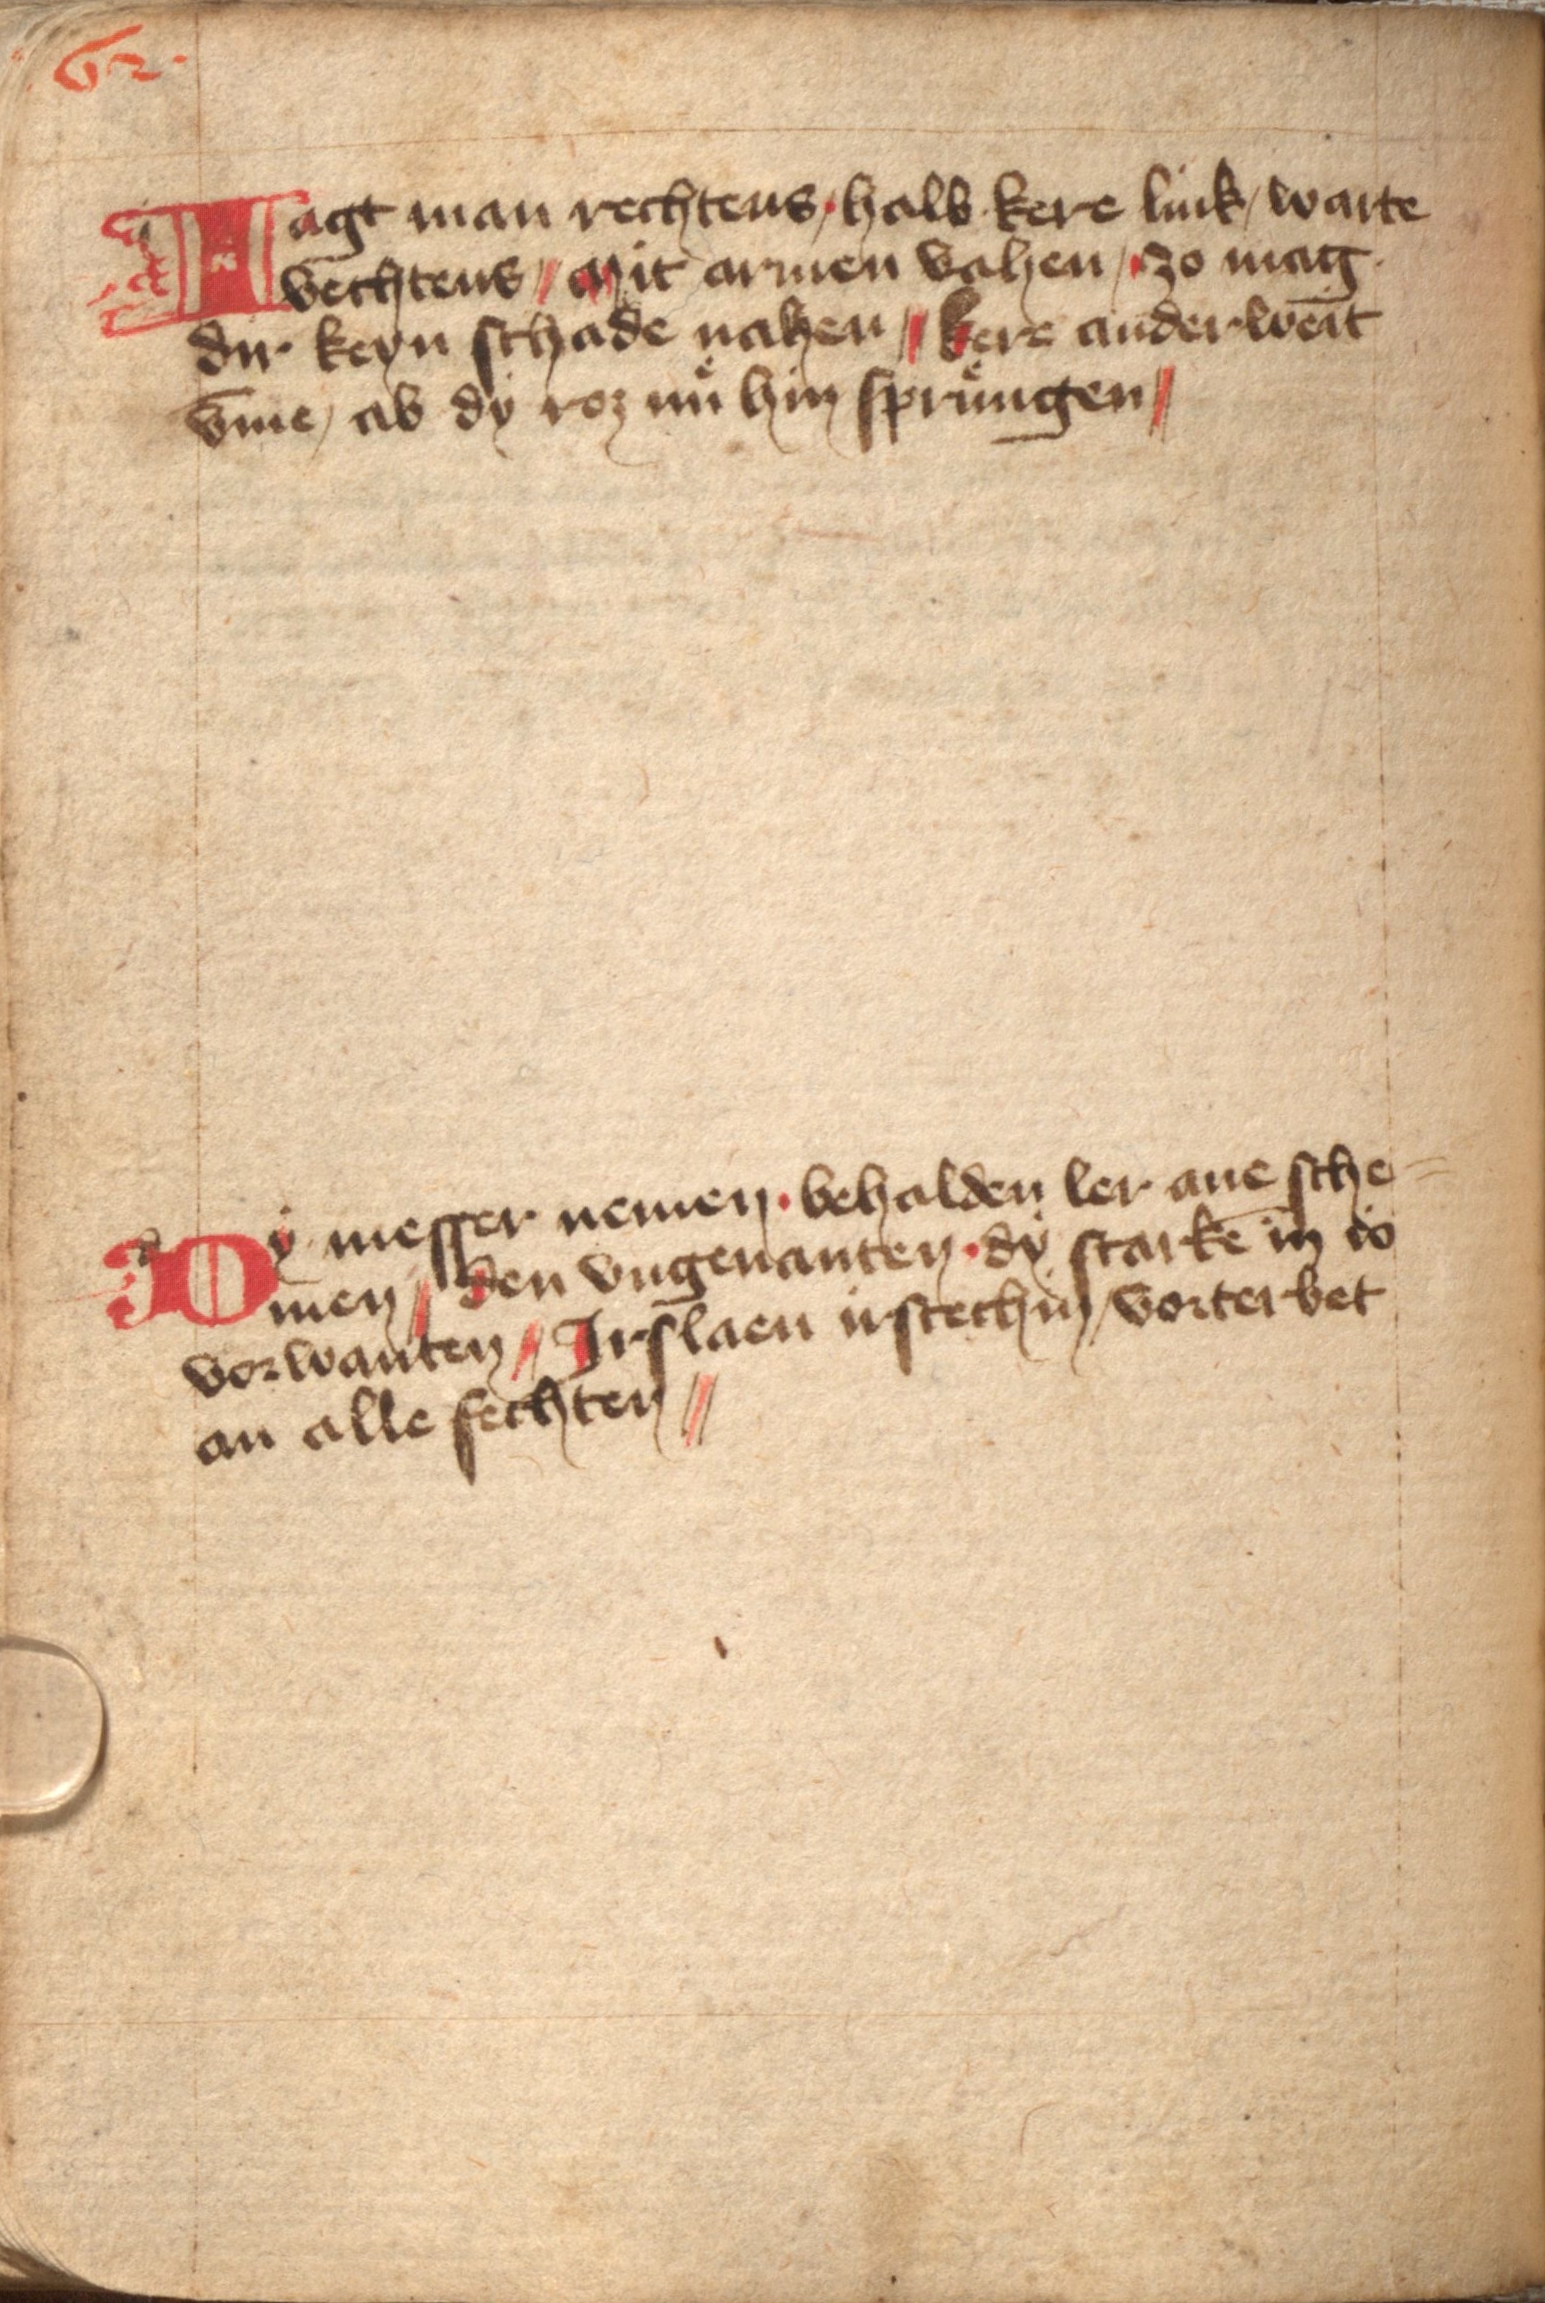 62.
Iagt man rechtens, halb kere link / warte
vechtens // Mit armen vahen / zo mag
dir keyn schade nahen // kere anderweit
vm̄e / ab dy roz nuͤ hin spruͤngen //
Dy messer nemen · behalden ler ane sche=
men // Den vngenanten · dy starkē in is
vorwanten // Irslaen irstechin / vorterbet
an alle fechten //